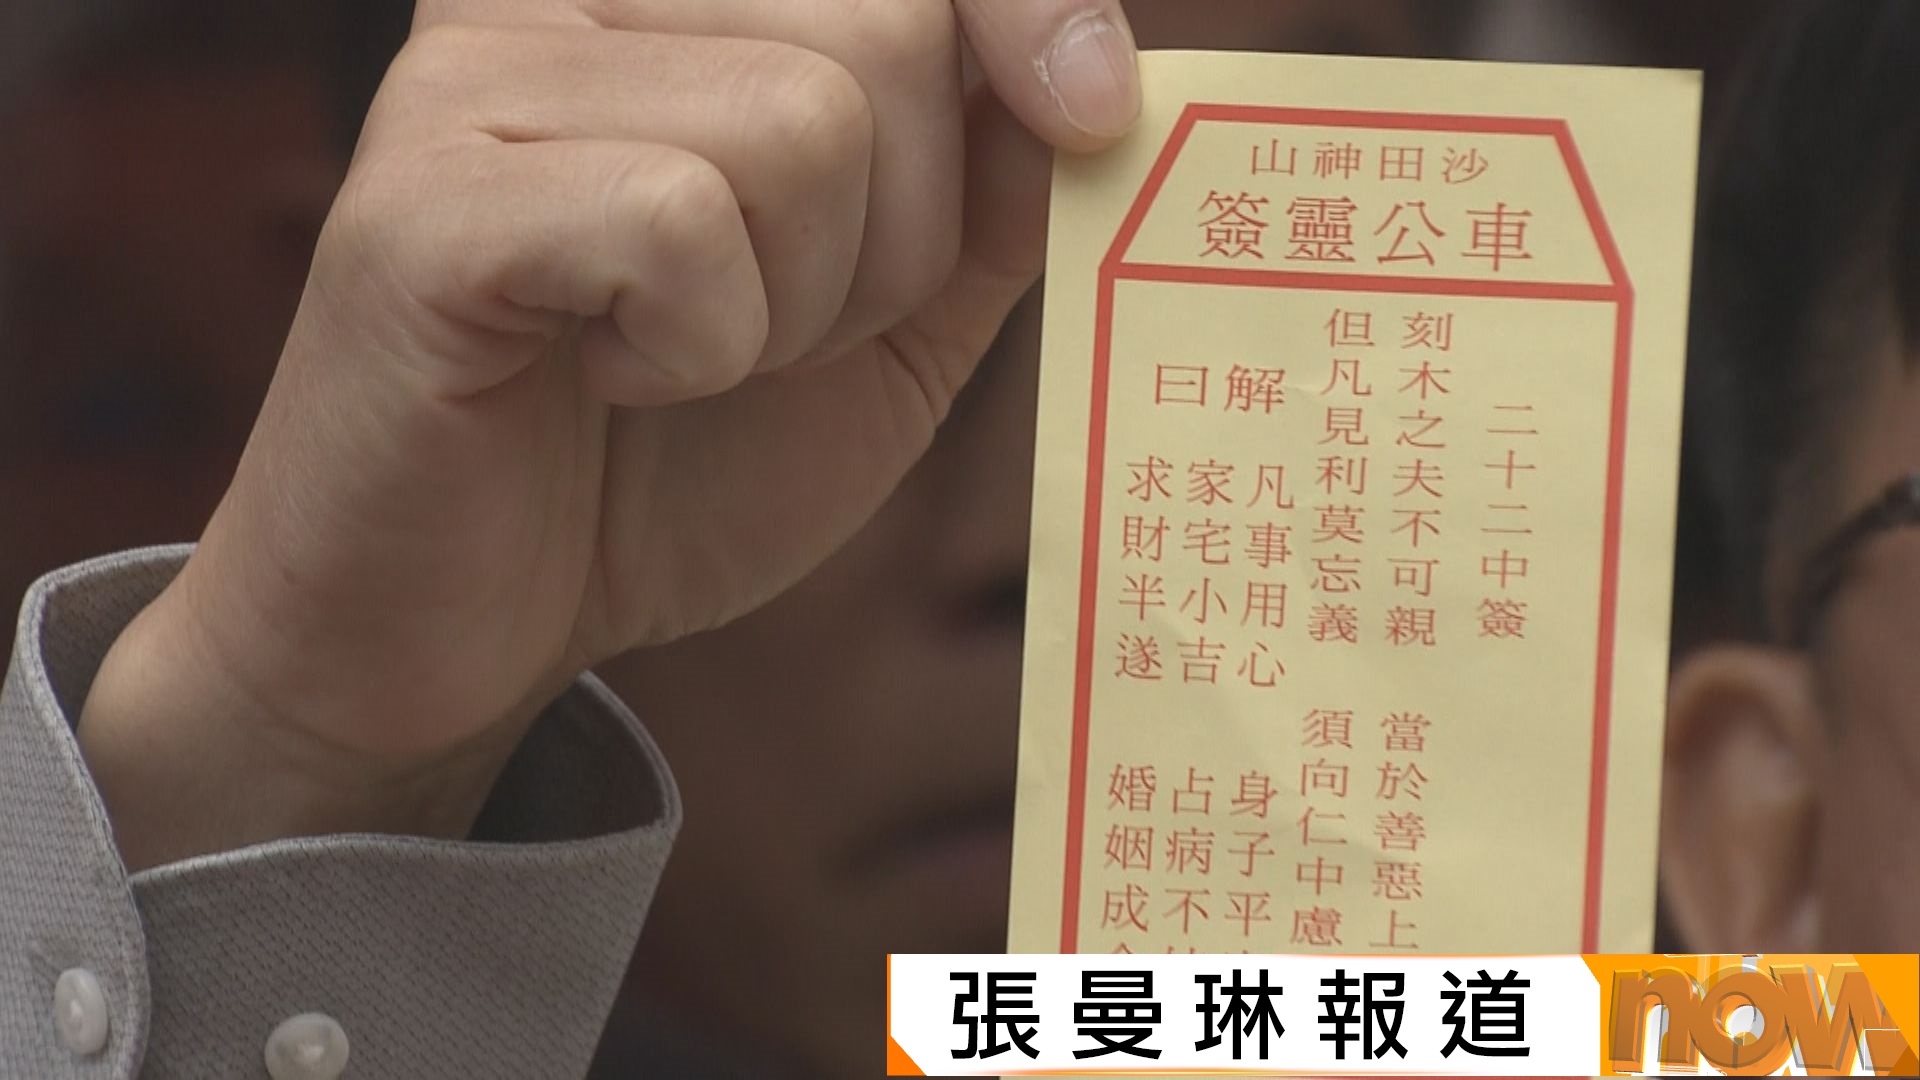 沙田神山
車公靈簽
二十二中簽
刻木之夫不可親 當於善惡上
但凡見利莫忘義 須向仁中處
解曰
凡事用心 身子平
家宅小吉 占病不
求財半遂 婚姻成
張曼琳報道
now